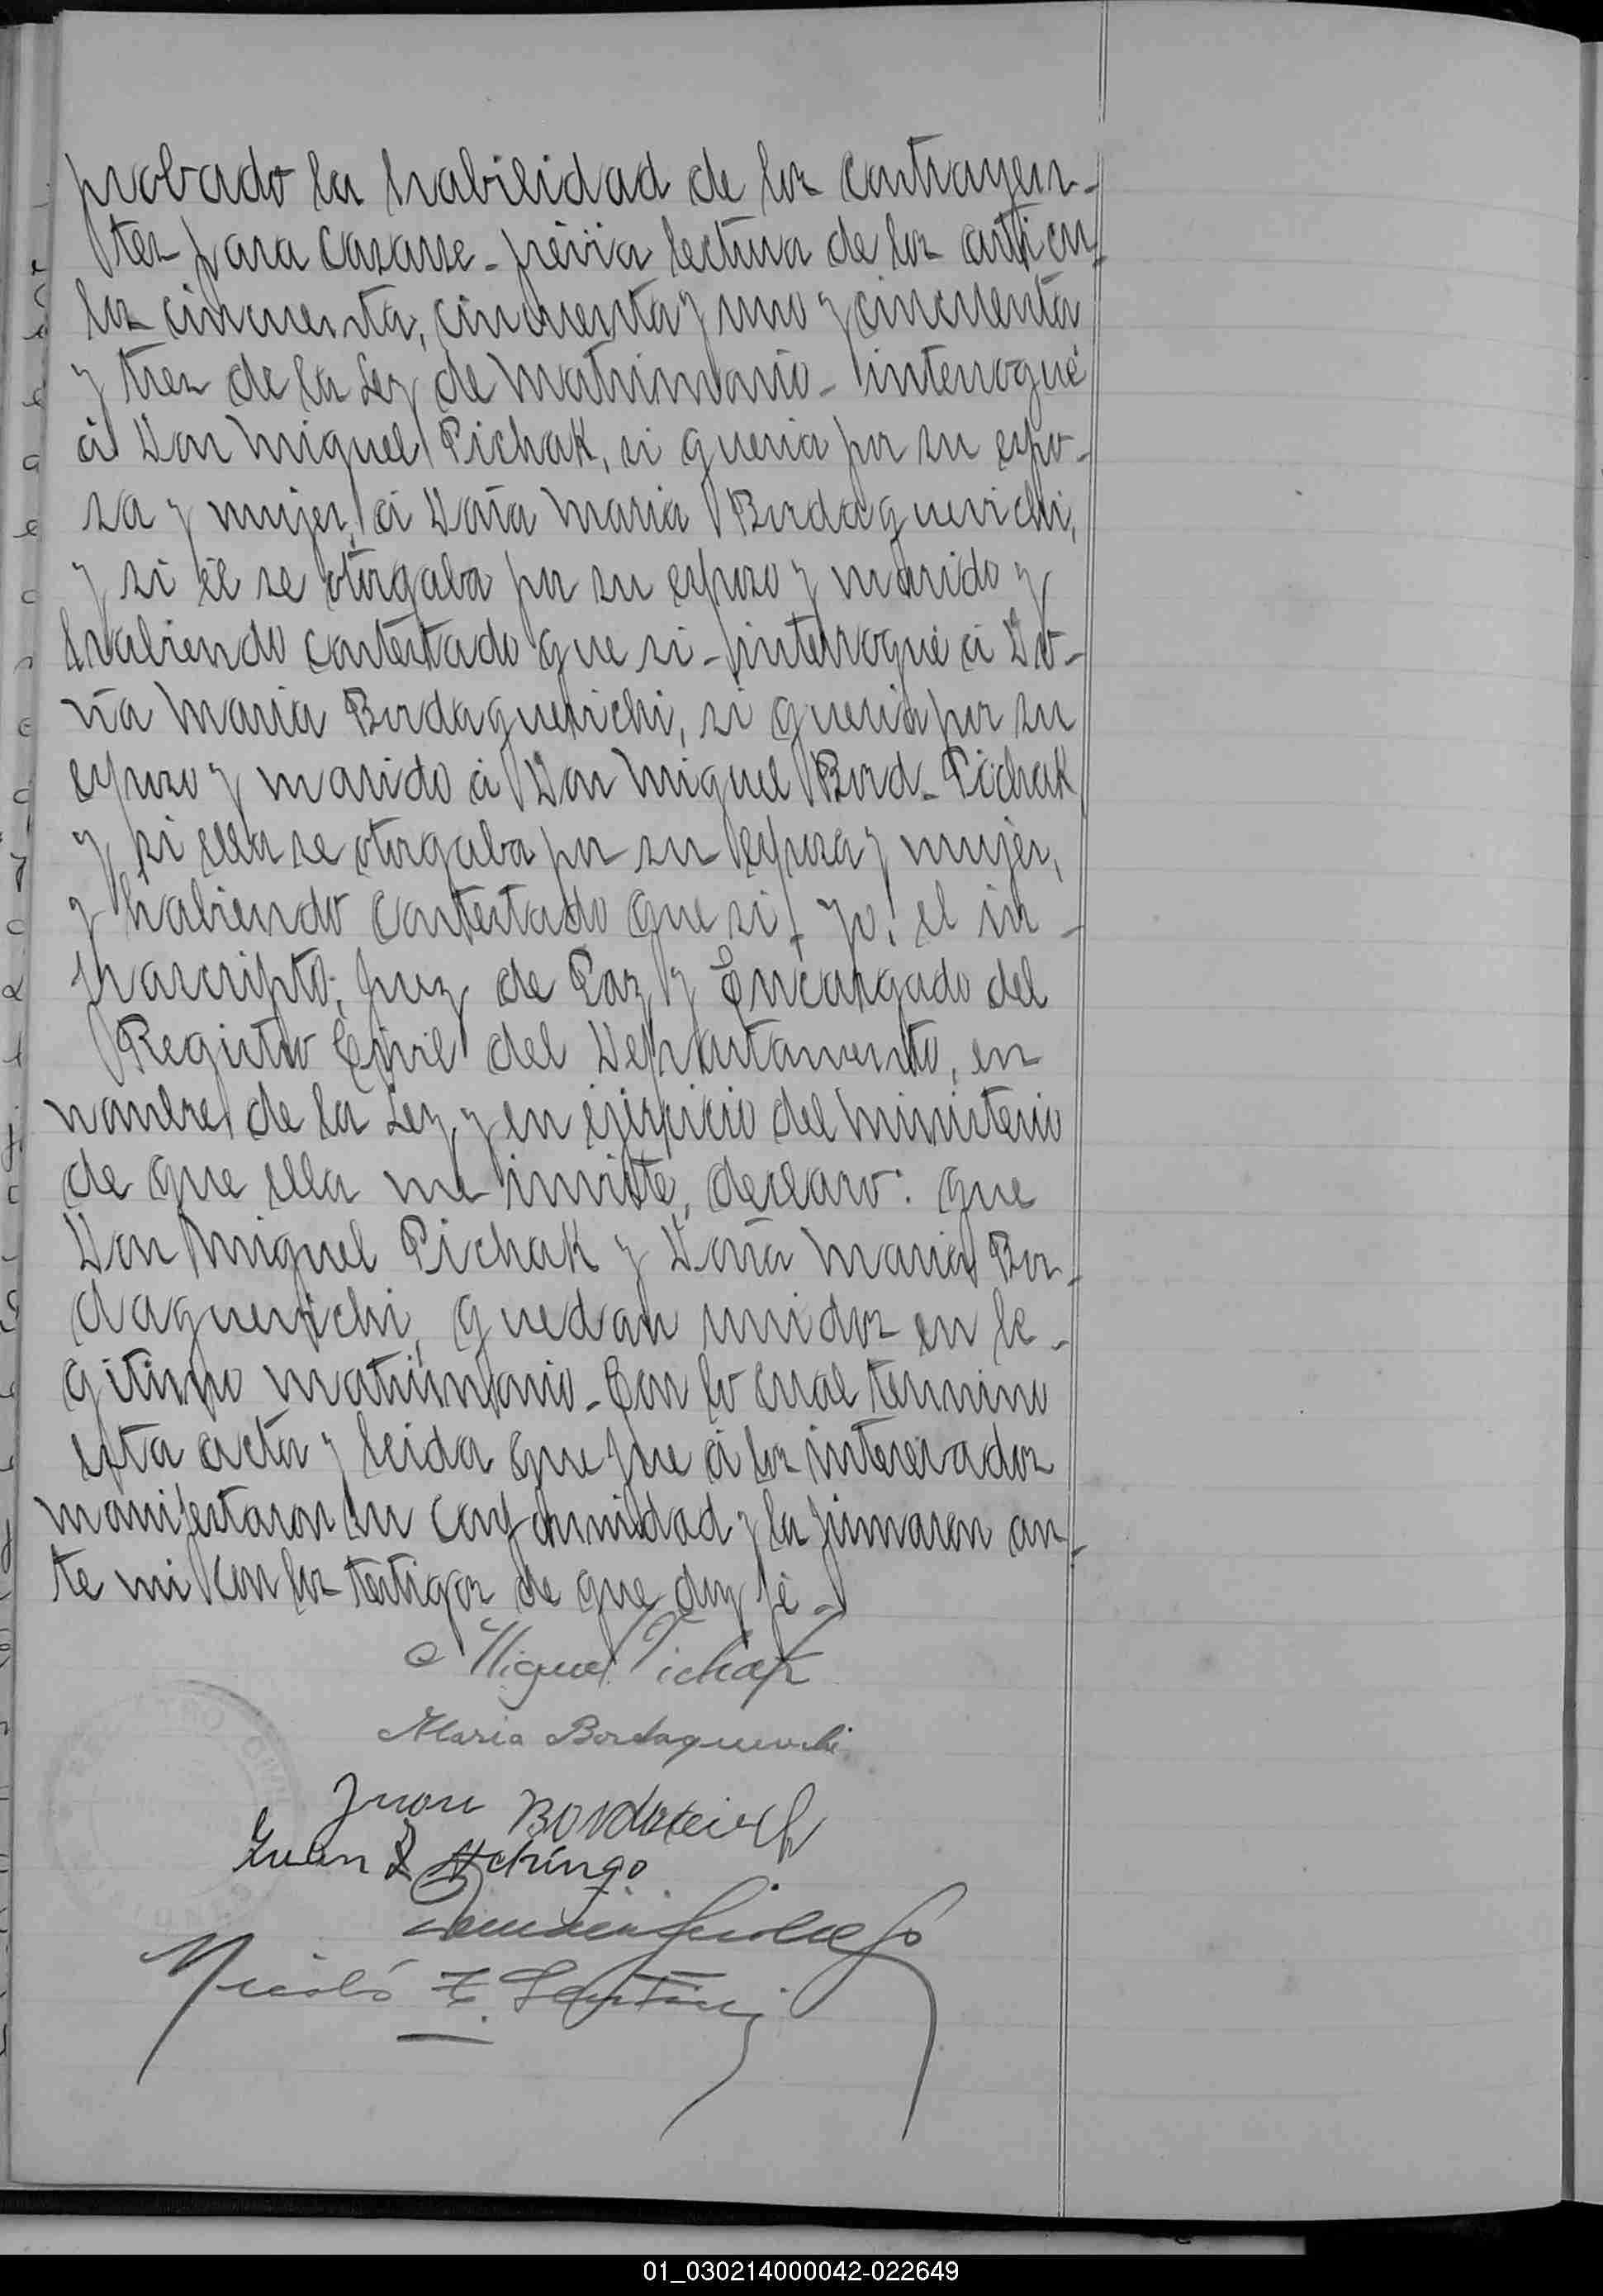 probado la habilidad de los contrayen-
tes para casarse - prévia lectura de los articu-
los cincuenta, cincuenta y uno y cincuenta
y tres de la Ley de Matrimonio - interrogué
á Don Miguel Pichak, si queria por su espo-
sa y mujer, á Doña Maria Bordaquevichi,
y si él se otorgaba por su esposo y marido y
habiendo contestado que si - interrogué á Do-
ña Maria Bordaquevichi, si queria por su
esposo y marido á Don Miguel Bord - Pichak
y si ella se otorgaba por su esposa y mujer,
y habiendo contestado que si - yo, el in-
frascripto, Juez de Paz y Encargado del
Registro Civil del Departamento, en
nombre de la Ley, y en ejercicio del Ministerio
de que ella me inviste, declaro: que
Don Miguel Pichak y Doña Maria Bor-
daquevichi, quedan unidos en le-
gitimo matrimonio - Con lo cual termino
esta acta y leida que fue á los interesados
manifestaron su conformidad y la firmaron an-
te mi con los testigos de que doy fé -
Miguel Pichak
Maria Bordaquevichi
Juan
Juan
01_030214000042-022649